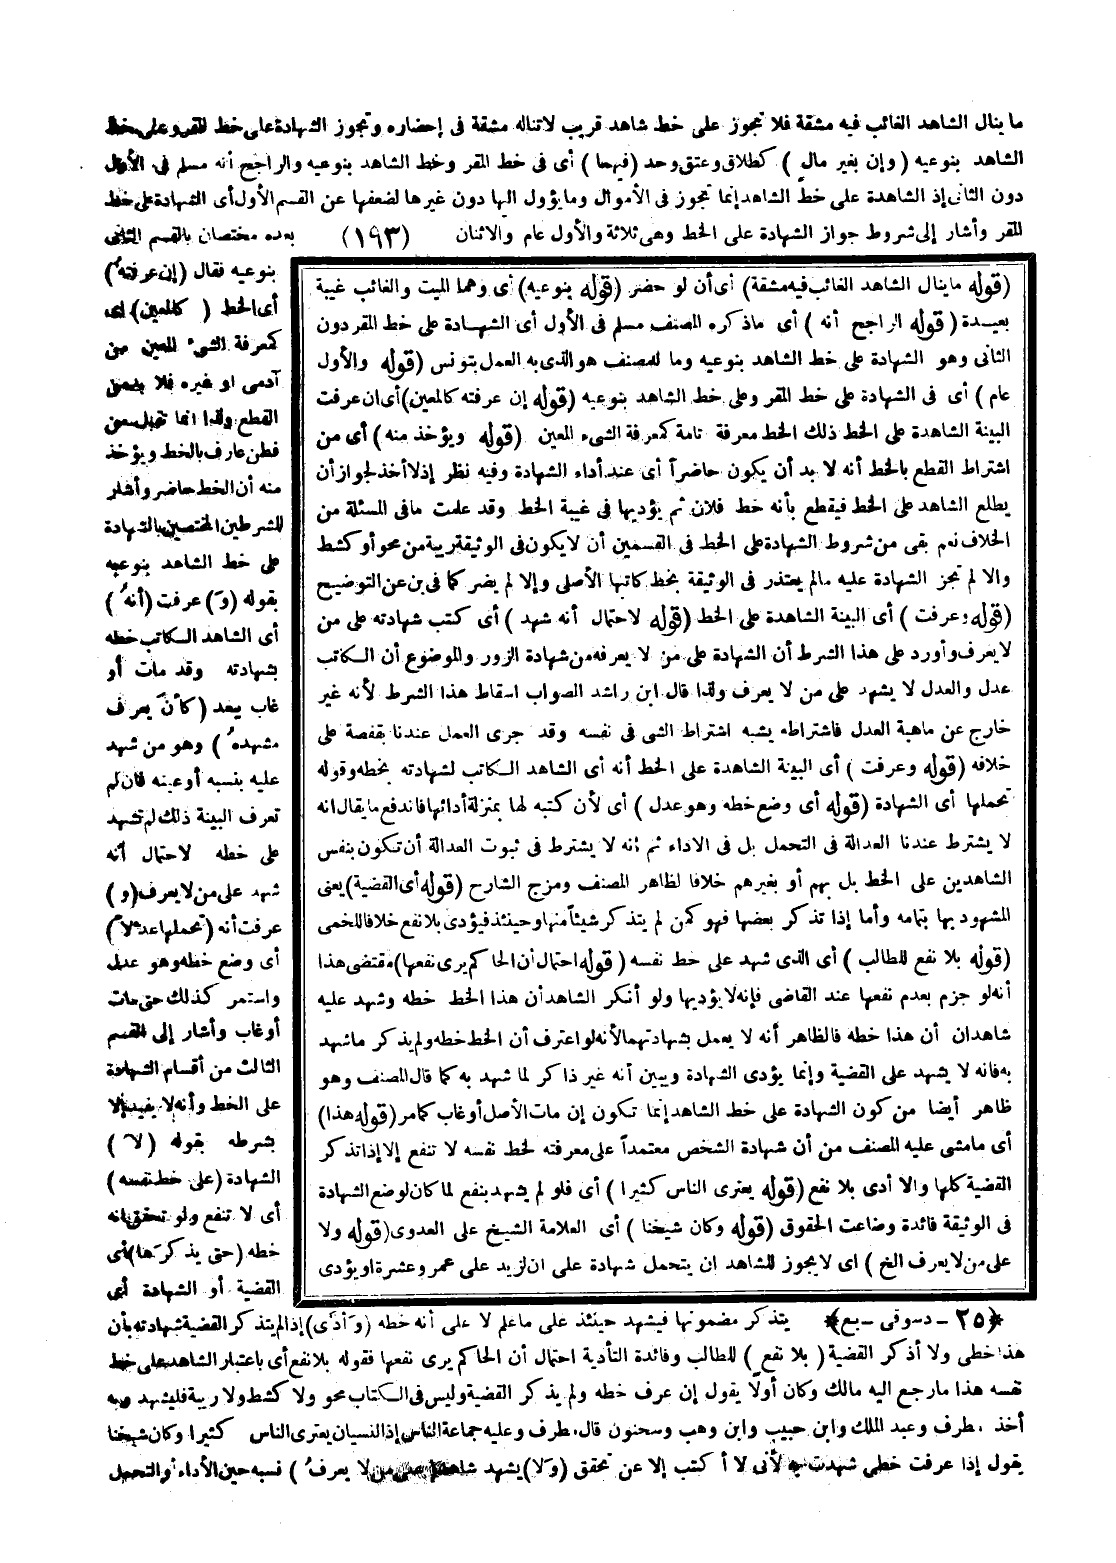 ما ينال الشاهد الغائب فيه مشقة فلا تجوز على خط شاهد قريب لاتناله مشقة فى إحضاره وتجوز الشهادة على خط المقر وعلى خط
الشاهد بنوعيه (وإن بغير مال) كطلاق وعتق وحد (فيهما) أى فى خط المقر وخط الشاهد بنوعيه والراجح أنه مسلم فى الأول
دون الثانى إذ الشاهدة على خط الشاهد إنما تجوز فى الأموال وما يؤول اليها دون غيرها لضعفها عن القسم الأول أى الشهادة على خط
المقر وأشار إلى شروط جواز الشهادة على الخط وهى ثلاثة والأول عام والاثنان (١٩٣) بعده مختصان بالقسم الثانى
بنوعيه فقال (إن عرفته)
أى الخط (كالمعين) أى
كمعرفة الشىء المعين من
آدمى او غيره فلا بد من
القطع ولذا انما تقبل من
فطن عارف بالخط ويؤخذ
منه أن الخط حاضر وأشار
للشرطين المختصين بالشهادة
على خط الشاهد بنوعيه
بقوله (وَ) عرفت (أنهُ)
أى الشاهد الكاتب خطه
بشهادته وقد مات أو
غاب ببعد (كأنَ يعرف
مشهدهُ) وهو من شهد
عليه بنسبه أو عينه فان لم
تعرف البينة ذلك لم تشهد
على خطه لاحتمال أنه
شهد على من لا يعرف (و)
عرفت أنه (تحملها عدلاً)
أى وضع خطه وهو عدل
واستمر كذلك حتى مات
أو غاب وأشار إلى القسم
الثالث من أقسام الشهادة
على الخط وأنه لا يفيد إلا
بشرطه بقوله (لاَ)
الشهادة (على خط نفسه)
أى لا تنفع ولو تحقق انه
خطه (حتى يذكرَها) أى
القضية أو الشهادة أى
(قوله ما ينال الشاهد الغائب فيه مشقة) أى أن لو حضر (قوله بنوعيه) أى وهما الميت والغائب غيبة
بعيدة (قوله الراجح أنه) أى ماذكره المصنف مسلم فى الأول أى الشهادة على خط المقر دون
الثانى وهو الشهادة على خط الشاهد بنوعيه وما للمصنف هو الذى به العمل بتونس (قوله والأول
عام) أى فى الشهادة على خط المقر وعلى خط الشاهد بنوعيه (قوله إن عرفته كالمعين) أى ان عرفت
البينة الشاهدة على الخط ذلك الخط معرفة تامة كمعرفة الشىء المعين (قوله ويؤخذ منه) أى من
اشتراط القطع بالخط أنه لا بد أن يكون حاضراً أى عند أداء الشهادة وفيه نظر إذ لا أخذ لجواز أن
يطلع الشاهد على الخط فيقطع بأنه خط فلان ثم يؤديها فى غيبة الخط وقد علمت مافى المسئلة من
الخلاف نعم بقى من شروط الشهادة على الخط فى القسمين أن لا يكون فى الوثيقة ريبة من محو أو كشط
والا لم تجز الشهادة عليه مالم يعتذر فى الوثيقة بخط كاتبها الأصلى وإلا لم يضر كما فى بن عن التوضيح
(قوله وعرفت) أى البينة الشاهدة على الخط (قوله لاحتمال أنه شهد) أى كتب شهادته على من
لا يعرف وأورد على هذا الشرط أن الشهادة على من لا يعرفه من شهادة الزور والموضوع أن الكاتب
عدل والعدل لا يشهد على من لا يعرف ولذا قال ابن راشد الصواب اسقاط هذا الشرط لأنه غير
خارج عن ماهية العدل فاشتراطه يشبه اشتراط الشى فى نفسه وقد جرى العمل عندنا بقفصة على
خلافه (قوله وعرفت) أى البينة الشاهدة على الخط أنه أى الشاهد الكاتب لشهادته بخطه وقوله
تحملها أى الشهادة (قوله أى وضع خطه وهو عدل) أى لأن كتبه لها بمنزلة أدائها فاندفع ما يقال انه
لا يشترط عندنا العدالة فى التحمل بل فى الاداء ثم أنه لا يشترط فى ثبوت العدالة أن تكون بنفس
الشاهدين على الخط بل بهم أو بغيرهم خلافا لظاهر المصنف ومزج الشارح (قوله أى القضية) يعنى
المشهود بها بتمامه وأما إذا تذكر بعضها فهو كمن لم يتذكر شيئاً منها وحينئذ فيؤدى بلا نفع خلافا للخمى
(قوله بلا نفع للطالب) أى الذى شهد على خط نفسه (قوله احتمال أن الحاكم يرى نفعها) مقتضى هذا
أنه لو جزم بعدم نفعها عند القاضى فإنه لا يؤديها ولو أنكر الشاهد أن هذا الخط خطه وشهد عليه
شاهدان أن هذا خطه فالظاهر أنه لا يعمل بشهادتهما لأنه لو اعترف أن الخط خطه ولم يذكر ما شهد
به فانه لا يشهد على القضية وإنما يؤدى الشهادة ويبين أنه غير ذاكر لما شهد به كما قال المصنف وهو
ظاهر أيضا من كون الشهادة على خط الشاهد إنما تكون إن مات الأصل أو غاب كما مر (قوله هذا)
أى مامشى عليه المصنف من أن شهادة الشخص معتمداً على معرفته لخط نفسه لا تنفع إلا إذا تذكر
القضية كلها والا أدى بلا نفع (قوله يعترى الناس كثيرا) أى فلو لم يشهد بنفع لما كان لوضع الشهادة
فى الوثيقة فائدة وضاعت الحقوق (قوله وكان شيخنا) أى العلامة الشيخ على العدوى (قوله ولا
على من لا يعرف الخ) اى لا يجوز للشاهد ان يتحمل شهادة على ان لزيد على عمر وعشرة او يؤدى
﴿٢٥ - دسوقى - بع﴾ يتذكر مضمونها فيشهد حينئذ على ما علم لا على أنه خطه (وَأدَّى) إذا لم يتذكر القضية شهادته بأن
هذا خطى ولا أذكر القضية (بلا نفع) للطالب وفائدة التأدية احتمال أن الحاكم يرى نفعها فقوله بلا نفع أى باعتبار الشاهد على خط
نفسه هذا مارجع اليه مالك وكان أولًا يقول إن عرف خطه ولم يذكر القضية وليس فى الكتاب محو ولا كشط ولا ريبة فليشهد وبه
أخذ مطرف وعبد الملك وابن حبيب وابن وهب وسحنون قال مطرف وعليه جماعة الناس إذ النسيان يعترى الناس كثيرا وكان شيخنا
يقول إذا عرفت خطى شهدت به لأنى لا أكتب إلا عن تحقق (وَلا) يشهد شاهد (على من لا يعرفُ) نسبه حين الأداء أو التحمل